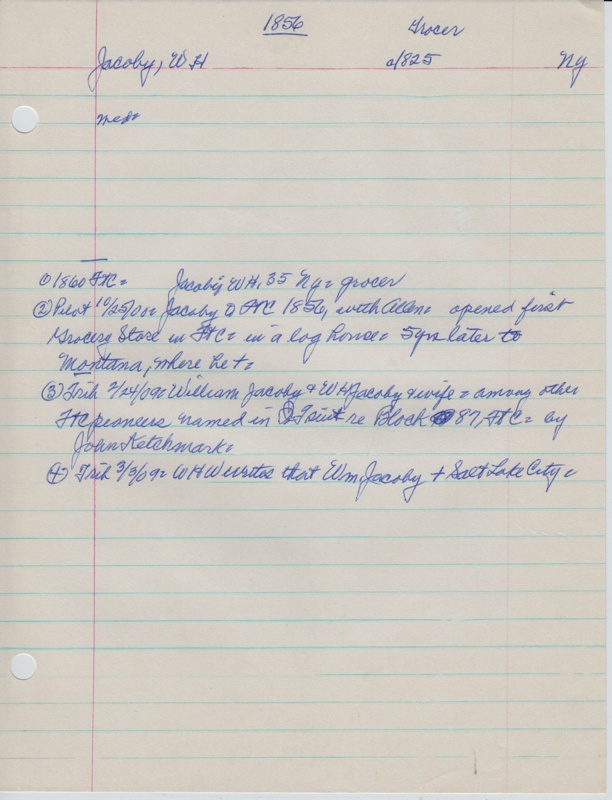 1856 Grocer
Jacoby, WH a/825 Ny
med=
① 1860 FtC= Jacoby, WH, 35 Ny= grocer
② Pilot 10/25/00= Jacoby a FtC 1856, with Allen= opened first
Grocery Store in FtC= in a log house= 5 yrs later to
Montana, where he +=
③ Trib 2/24/09= William Jacoby & WH Jacoby & wife= among other
FtC pioneers named in suit re Block 87, FtC= by
John Ketchmark=
④ Trib 3/3/09= WHW writes that Wm Jacoby + Salt Lake City=